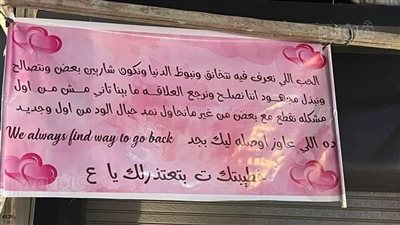 الحب اللي نعرف فيه نتخانق ونبوظ الدنيا ونكون شاريين بعض ونتصالح
ونبذل مجهود اننا نصلح ونرجع العلاقه مابيننا تاني مش من اول
مشكله نقطع مع بعض من غير مانحاول نمد حبال الود من اول وجديد
ده اللي عاوز اوصله ليك بجد We always find way to go back
خطيبتك ت بتعتذرلك يا ع